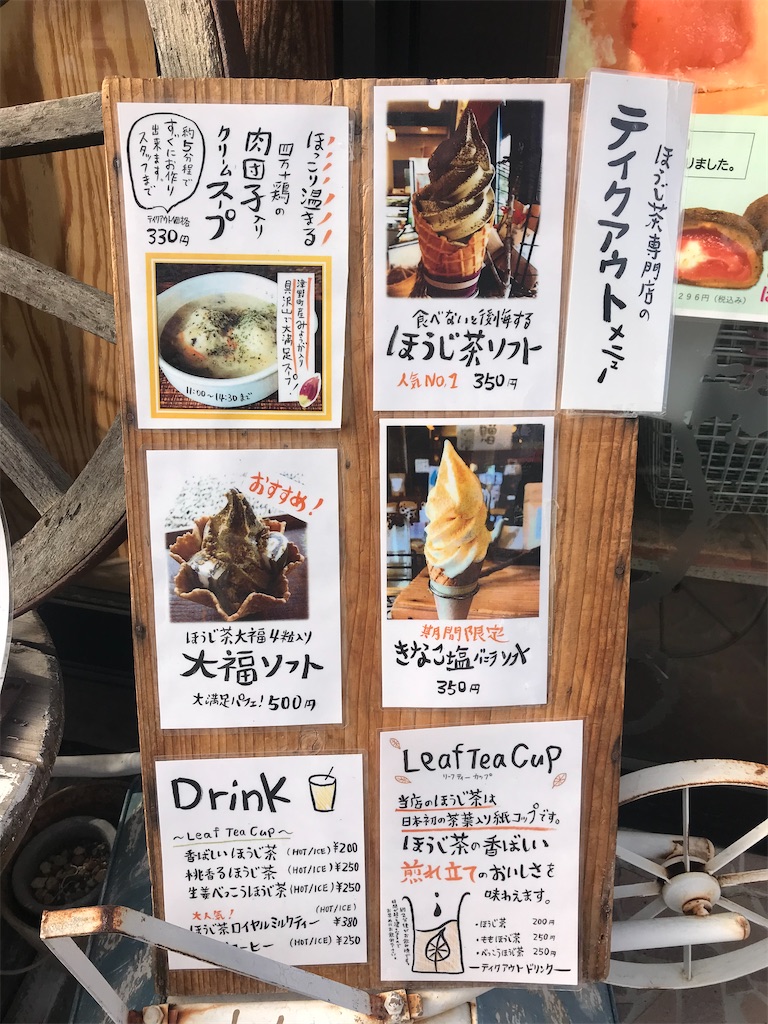 ほうじ茶専門店の
テイクアウトメニュー
ほっこり温まる
四万十鶏の
肉団子入り
クリームスープ
約5分程で
すぐにお作り
出来ます。
スタッフまで
テイクアウト価格
330円
津野町産みょうが入り
具沢山で大満足スープ!
11:00~14:30まで
食べないと後悔する
ほうじ茶ソフト
人気NO.1 350円
おすすめ!
ほうじ茶大福4粒入り
大福ソフト
大満足パフェ!500円
期間限定
きなこ塩バニラソフト
350円
Drink
~Leaf Tea Cup~
香ばしいほうじ茶 (HOT/ICE) ¥200
桃香るほうじ茶 (HOT/ICE) ¥250
生姜べっこうほうじ茶 (HOT/ICE) ¥250
大人気! (HOT/ICE)
ほうじ茶ロイヤルミルクティー ¥380
コーヒー (HOT/ICE) ¥250
Leaf Tea Cup
リーフティーカップ
当店のほうじ茶は
日本初の茶葉入り紙コップです。
ほうじ茶の香ばしい
煎れ立てのおいしさを
味わえます。
・ほうじ茶 200円
・ももほうじ茶 250円
・べっこうほうじ茶 250円
ーテイクアウトドリンクー
りました。
296円(税込み)